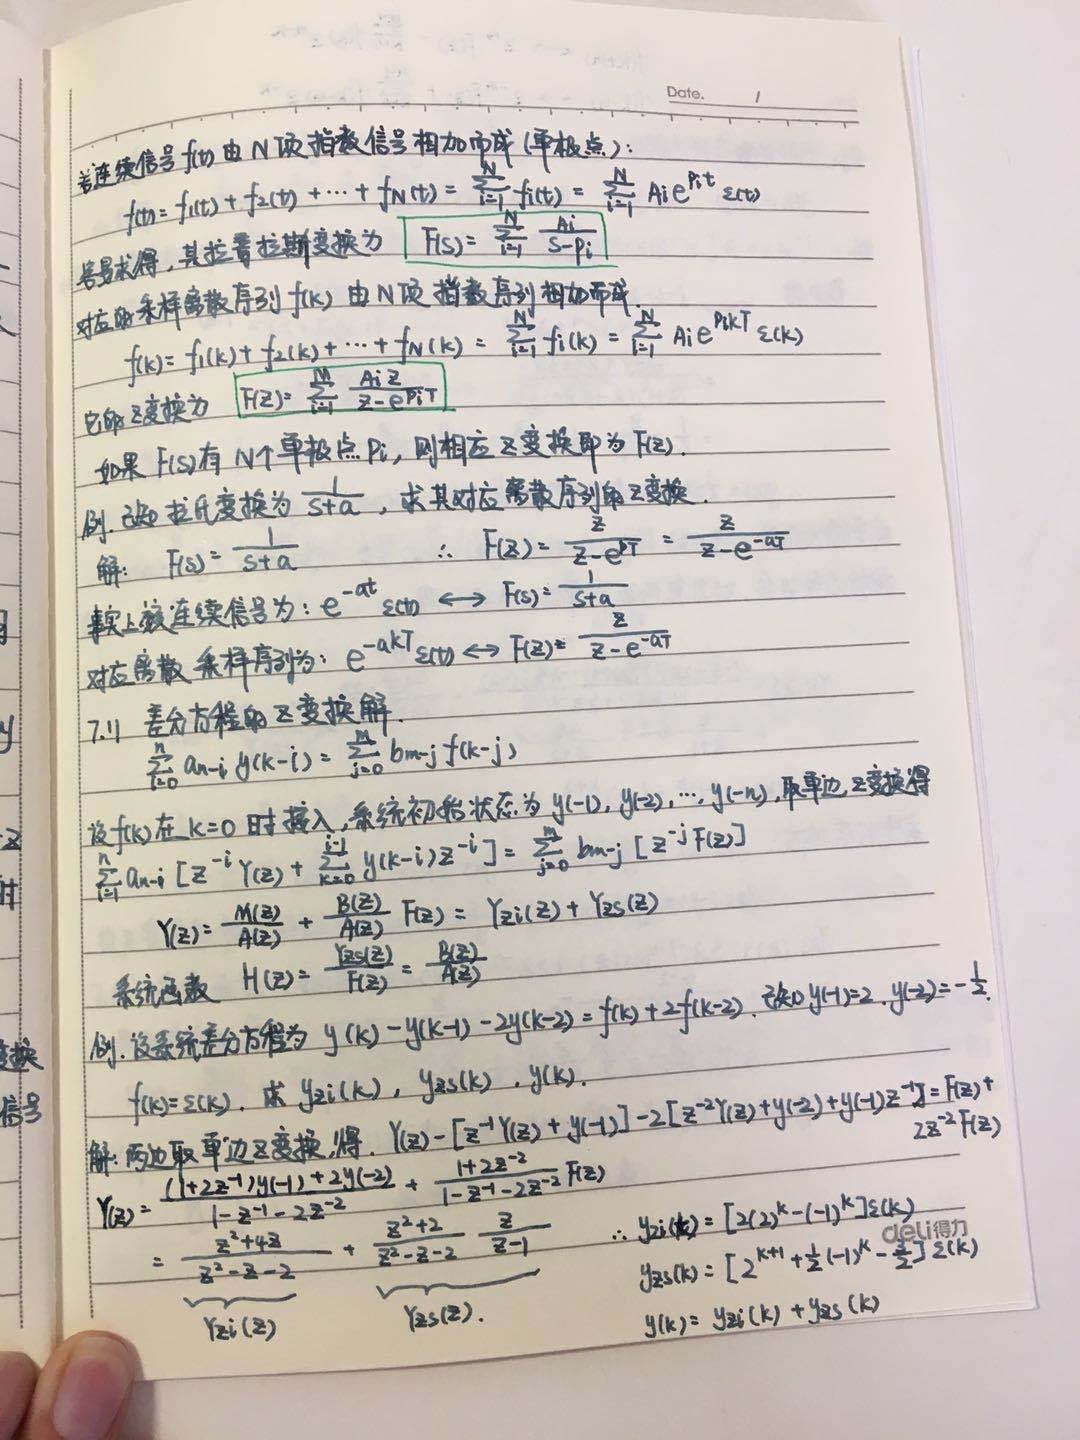 Date. /
若连续信号f(t)由N项指数信号相加而成(单极点):
f(t)= f₁(t) + f₂(t) + ⋯ + f_N(t) = ∑_{i=1}^{N} fi(t) = ∑_{i=1}^{N} Ai e^{Pit} ε(t)
容易求得,其拉普拉斯变换为 F(s)= ∑_{i=1}^{N} Ai/(s-Pi)
对应的采样离散序列f(k)由N项指数序列相加而成.
f(k)= f₁(k)+ f₂(k)+ ⋯ + f_N(k) = ∑_{i=1}^{N} fi(k) = ∑_{i=1}^{N} Ai e^{PikT} ε(k)
它的Z变换为 F(z)= ∑_{i=1}^{M} Ai z/(z-e^{PiT})
如果 F(s)有N个单极点Pi, 则相应Z变换即为F(z).
例. 已知拉氏变换为 1/(s+a), 求其对应离散序列的Z变换.
解: F(s)= 1/(s+a) ∴ F(z)= z/(z-e^{PT}) = z/(z-e^{-aT})
事实上该连续信号为: e^{-at} ε(t) ↔ F(s)= 1/(s+a)
对应离散采样序列为: e^{-akT} ε(t) ↔ F(z)= z/(z-e^{-aT})
7.11 差分方程的Z变换解.
∑_{i=0}^{n} a_{n-i} y(k-i) = ∑_{j=0}^{m} b_{m-j} f(k-j)
设f(k)在k=0时接入,系统初始状态为y(-1), y(-2), ⋯, y(-n), 取单边Z变换得
∑_{i=1}^{n} a_{n-i} [z^{-i} Y(z) + ∑_{k=0}^{i-1} y(k-i)z^{-i}] = ∑_{j=0}^{m} b_{m-j} [z^{-j} F(z)]
Y(z)= M(z)/A(z) + B(z)/A(z) F(z) = Yzi(z) + Yzs(z)
系统函数 H(z)= Yzs(z)/F(z) = B(z)/A(z)
例. 设系统差分方程为 y(k) - y(k-1) - 2y(k-2) = f(k) + 2f(k-2). 已知y(-1)=2. y(-2)= -1/2.
f(k)= ε(k). 求 yzi(k), yzs(k). y(k).
解: 两边取单边Z变换,得. Y(z) - [z⁻¹Y(z) + y(-1)] - 2[z⁻²Y(z) + y(-2) + y(-1)z⁻¹] = F(z) +
2z⁻²F(z)
Y(z)= ((1+2z⁻¹)y(-1) + 2y(-2))/(1-z⁻¹-2z⁻²) + (1+2z⁻²)/(1-z⁻¹-2z⁻²) F(z)
= (z²+4z)/(z²-z-2) + (z²+2)/(z²-z-2) z/(z-1)
Yzi(z) Yzs(z).
∴ yzi(k) = [2(2)^k - (-1)^k] ε(k)
deli得力
yzs(k) = [2^{k+1} + 1/2(-1)^k - /2] ε(k)
y(k) = yzi(k) + yzs(k)